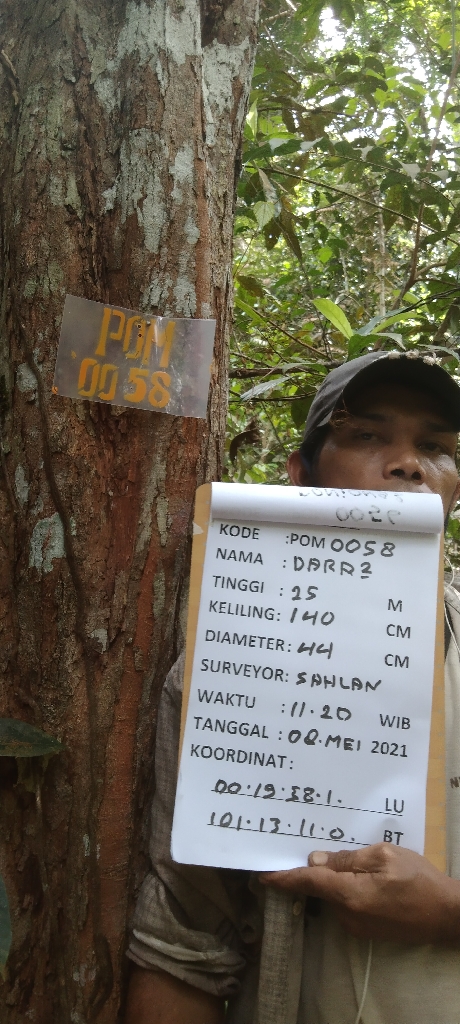 POM
0058
KODE :POM 0058
NAMA : DARR2
TINGGI : 25 M
KELILING: 140 CM
DIAMETER: 44 CM
SURVEYOR: SAHLAN
WAKTU : 11.20 WIB
TANGGAL : 08.MEI 2021
KOORDINAT:
00.19.58.1. LU
101.13.11.0. BT